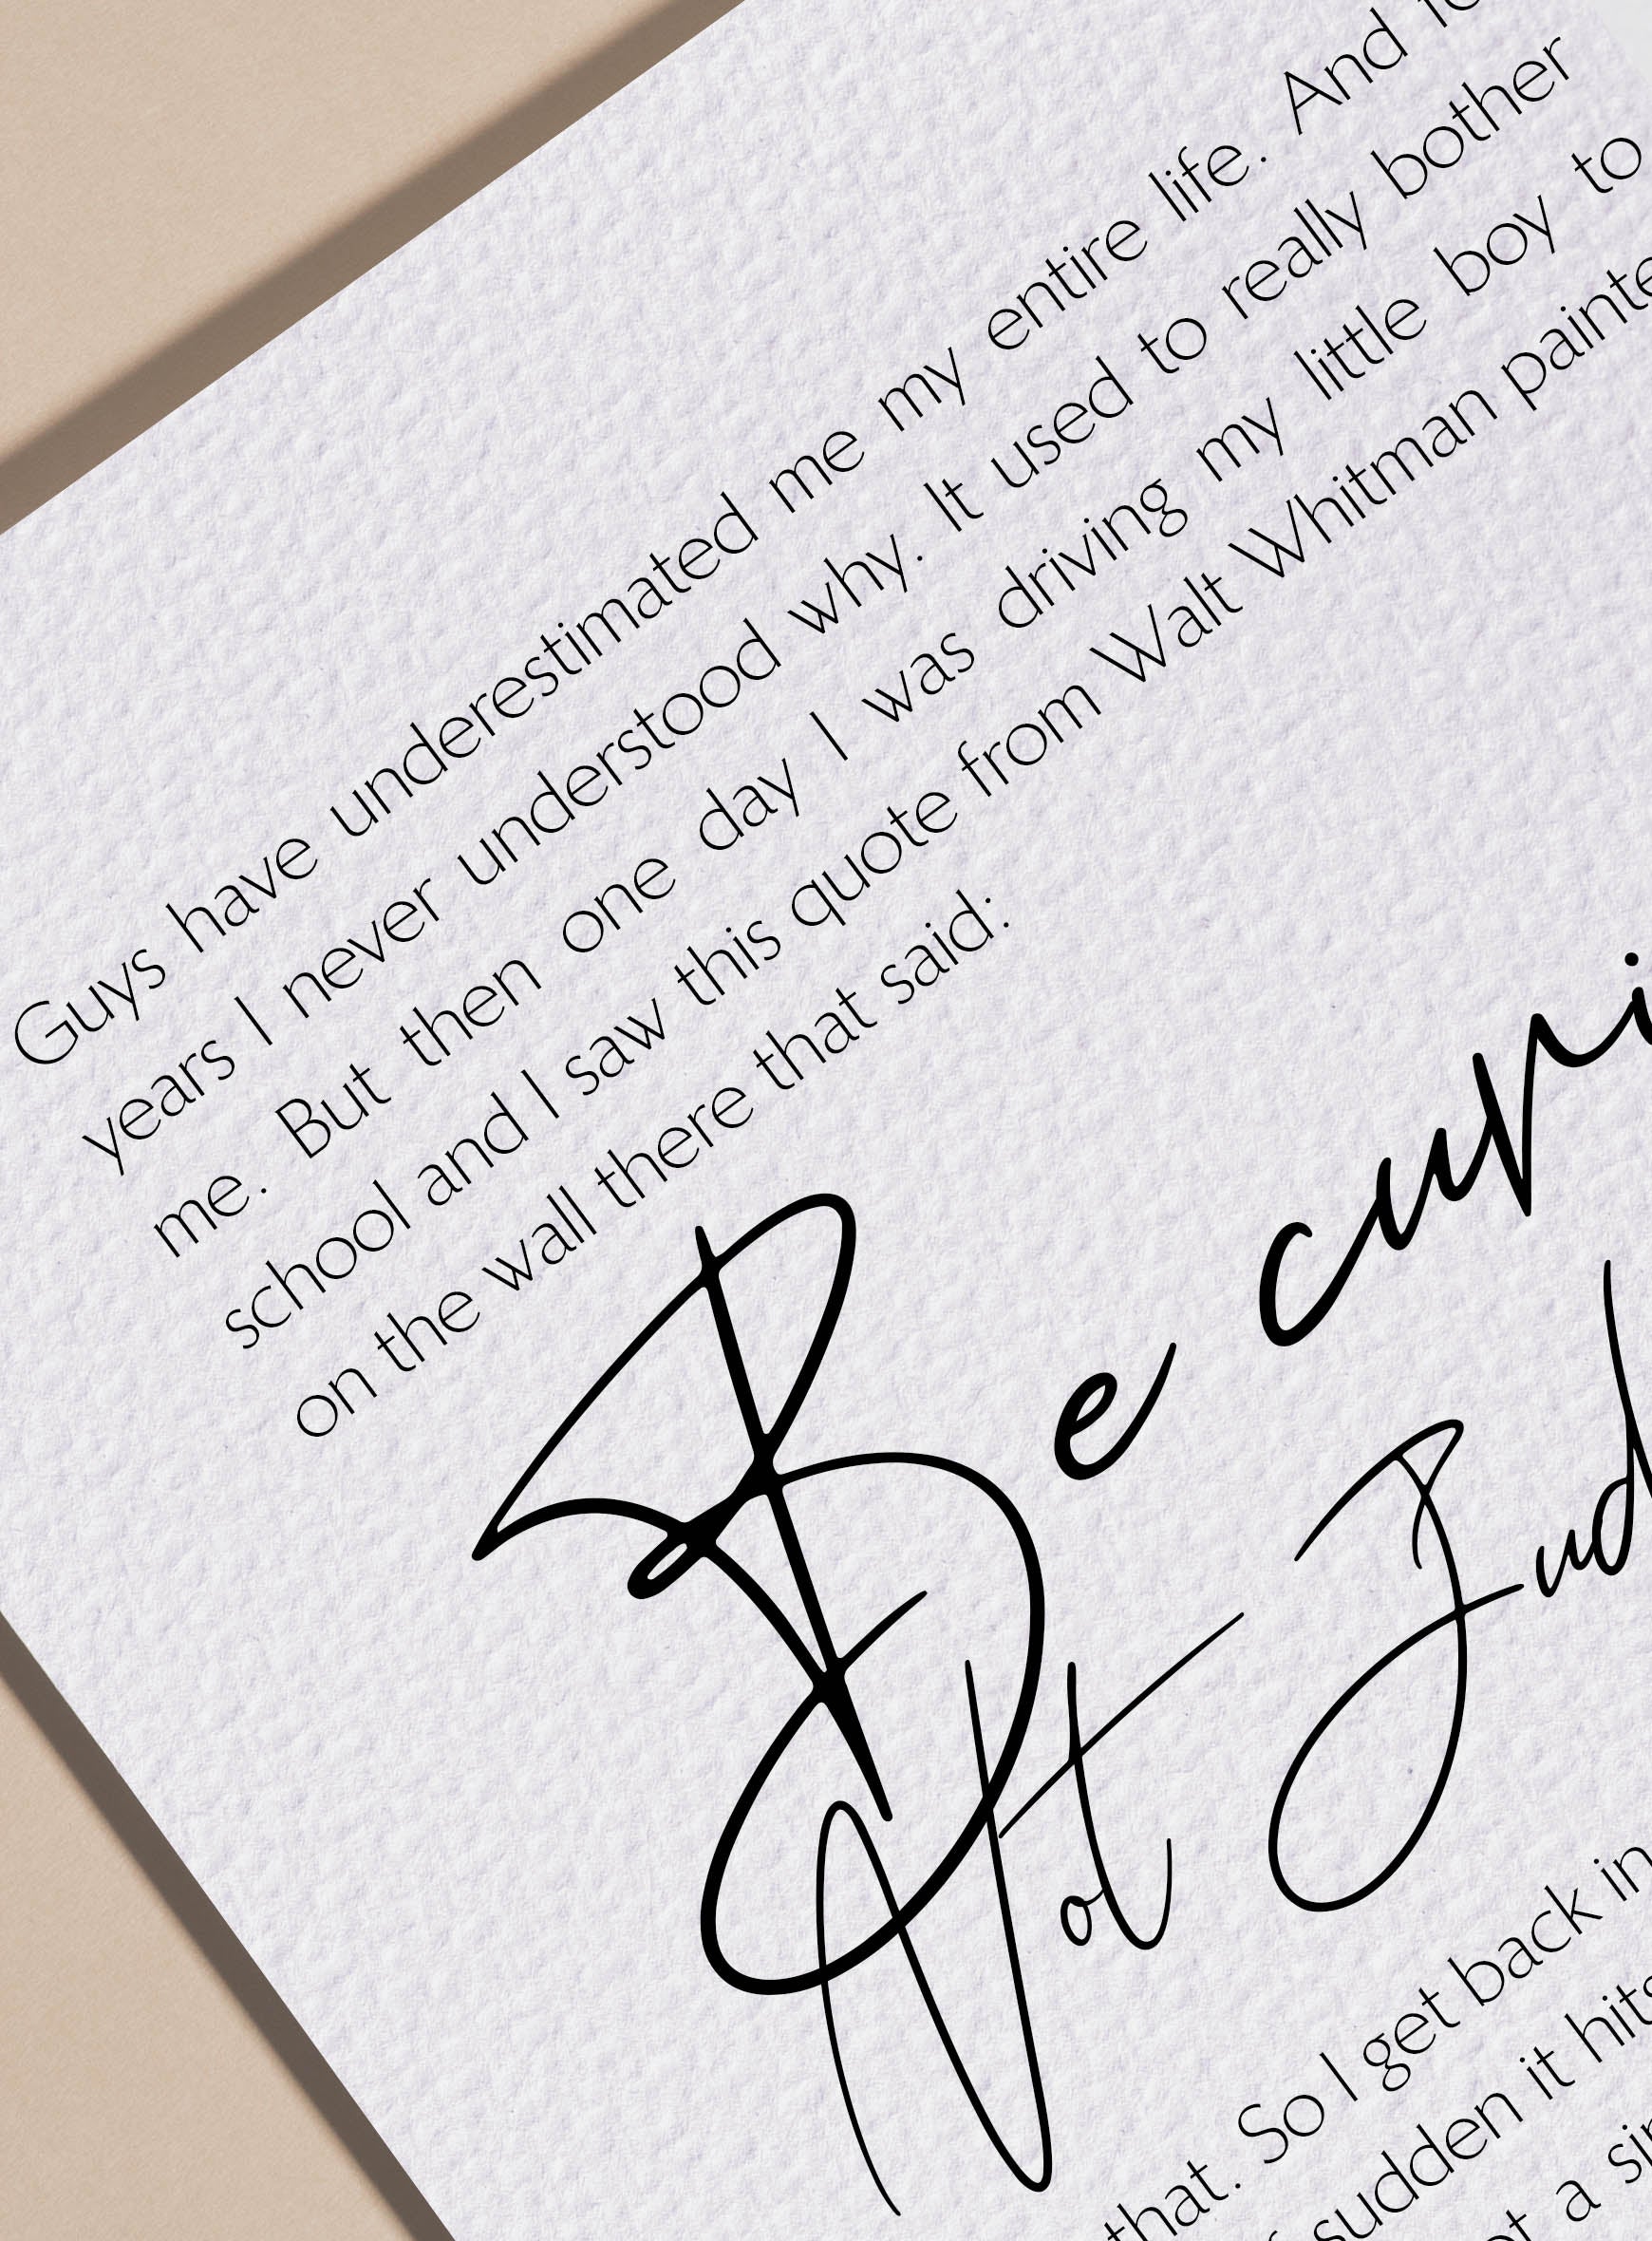 Guys have underestimated me my entire life. And
years I never understood why. It used to really bother
me. But then one day I was driving my little boy to
school and I saw this quote from Walt Whitman painte
on the wall there that said:
Be curi
Not Jud
that. So I get back in
sudden it hits
a si